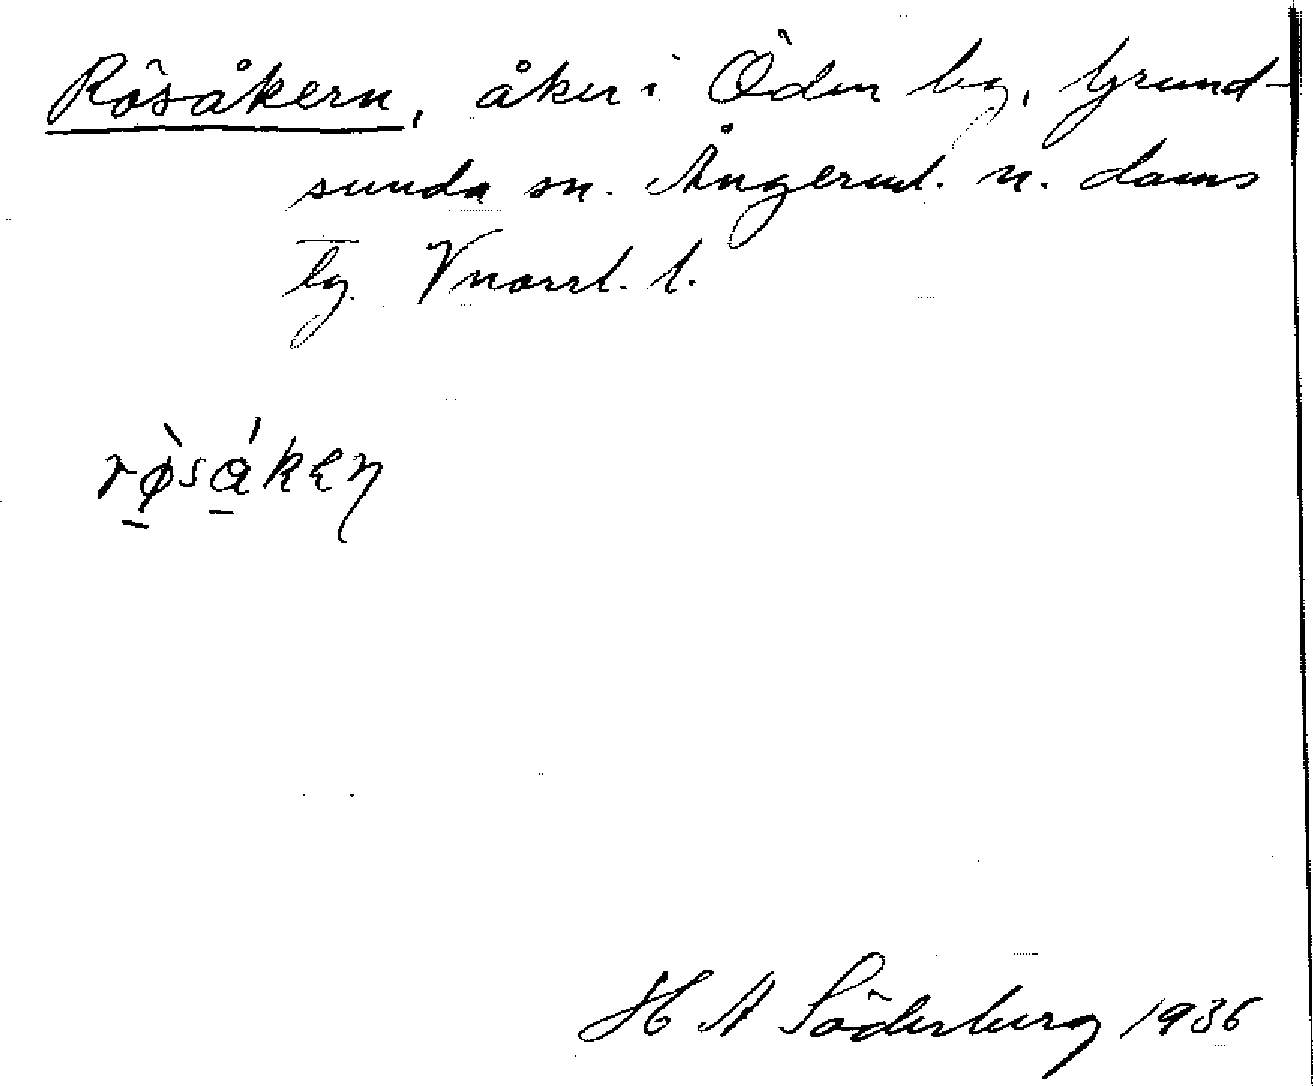 Rösåkern, åker i Öden by, Grund-
sunda sn. Ångerml. n. doms
lg. Vnorrl. l.
rø̀sákɐn
H A Söderberg 1936